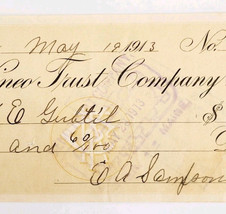 May 12 1913 No.
neo Trust Company
E Gubtil $
and 6/100
E A Sampson